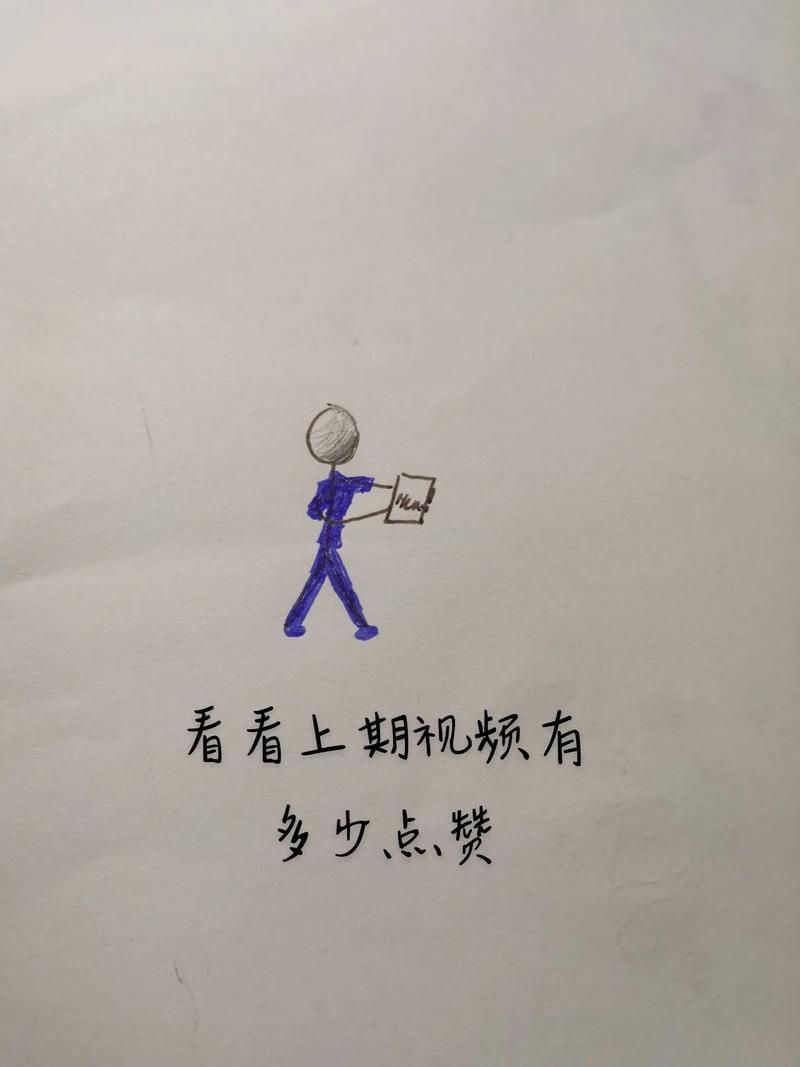 看看上期视频有
多少点赞